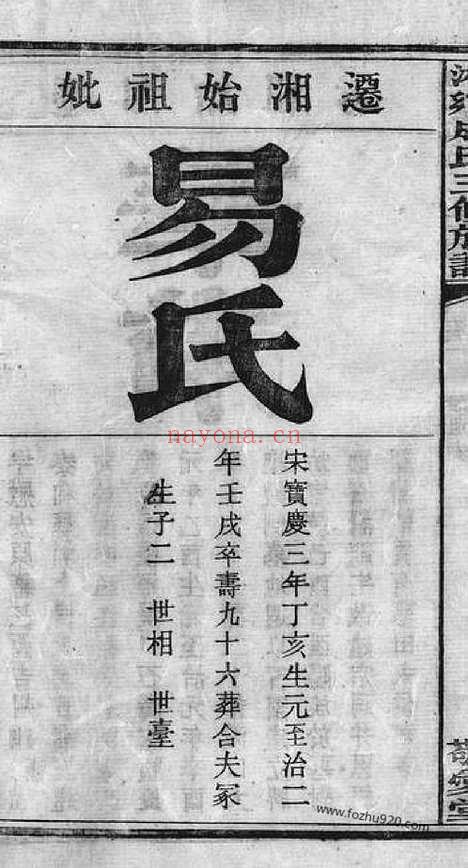 遷湘始祖妣
易氏
宋寶慶三年丁亥生元至治二
年壬戌卒壽九十六葬合夫冢
生子二　世相　世臺
氏三修族譜
敬愛堂
nayona.cn
www.fozhu920.com